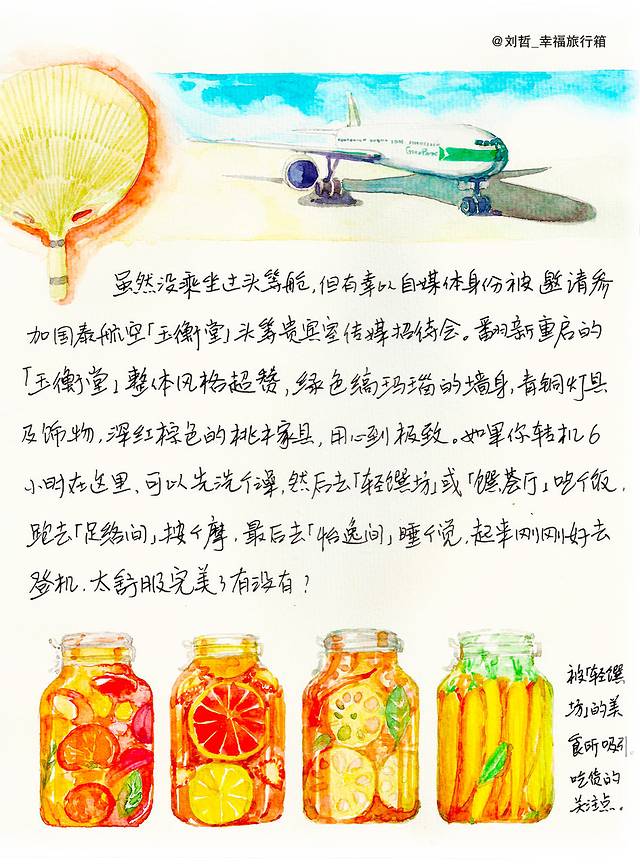 @刘哲_幸福旅行箱
虽然没乘坐过头等舱,但有幸以自媒体身份被邀请参
加国泰航空「玉衡堂」头等贵宾室传媒招待会。翻新重启的
「玉衡堂」整体风格超赞,绿色缟玛瑙的墙身,青铜灯具
及饰物,深红棕色的桃木家具,用心到极致。如果你转机6
小时在这里,可以先洗个澡,然后去「轻馔坊」或「馔荟厅」吃个饭,
跑去「足络间」按个摩,最后去「怡逸间」睡个觉,起来刚刚好去
登机,太舒服完美了有没有?
被「轻馔
坊」的美
食所吸引
吃货的
关注点。